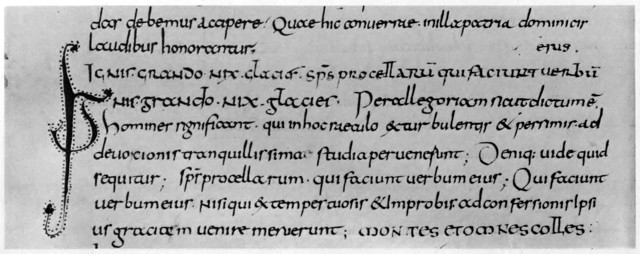 dos debemus accipere · Quae hic conversae · in illa patria dominicis
laudibus honorantur. eius .
IGNIS · GRANDO · NIX · glacies · sp̄s procellarū qui faciunt verbū
Ignis · grando · NIX · glacies · Per allegoriam sicut dictum ē,
homines significant · qui in hoc saeculo & turbulentis & pessimis · ad
devotionis tranquillissima studia pervenerunt ; Deniq: vide quid
sequitur ; sp̄s procellarum · qui faciunt verbum eius ; Qui faciunt
verbum eius · nisi qui & tempestuosis & improbis ad confessionis ipsi
us gratiam venire meruerunt ; MONTES ET OMNES COLLES :